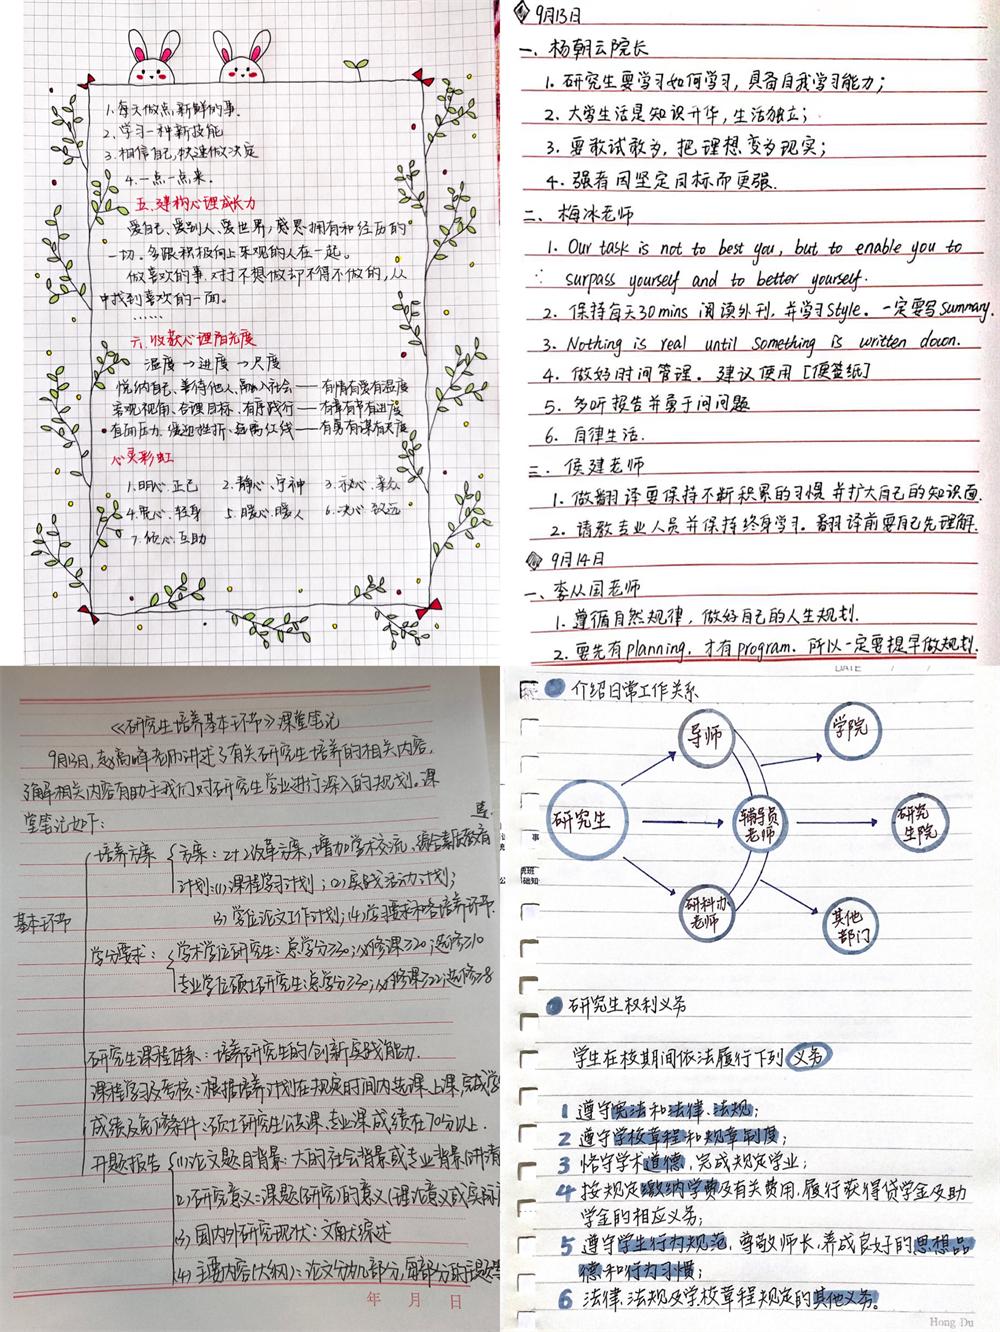 1.每天做点新鲜的事.
2.学习一种新技能
3.相信自己,快速做决定
4.一点一点来.
五.建构心理成长力
爱自己、爱别人、爱世界,感恩拥有和经历的
一切.多跟积极向上乐观的人在一起。
做喜欢的事.对于不想做却不得不做的,从
中找到喜欢的一面。
……
六.收获心理阳光度
温度→进度→尺度
悦纳自己、善待他人、融入社会——有情有爱有温度
客观视角、合理目标、有序践行——有章有节有进度
直面压力、缓迎挫折、远离红线——有勇有谋有尺度
心灵彩虹
1.明心.正己 2.静心.宁神 3.示心.亲众
4.宽心.轻身 5.暖心.暖人 6.决心.致远
7.倾心.互助
9月13日
一、杨朝云院长
1.研究生要学习如何学习,具备自我学习能力;
2.大学生活是知识升华,生活独立;
3.要敢试敢为,把理想变为现实;
4.强者因坚定目标而更强.
二、梅冰老师
1. Our task is not to best you, but to enable you to
surpass yourself and to better yourself.
2.保持每天30mins 阅读外刊,并学习style。一定要写summary.
3. Nothing is real until something is written down.
4.做好时间管理。建议使用[便签纸]
5.多听报告并勇于问问题
6.自律生活.
三、侯建老师
1.做翻译要保持不断积累的习惯并扩大自己的知识面.
2.请教专业人员并保持终身学习。翻译前要自己先理解.
9月14日
一、李从国老师
1.遵循自然规律,做好自己的人生规划.
2.要先有planning,才有program.所以一定要提早做规划.
《研究生培养基本环节》课堂笔记
9月13日,赵高峰老师讲述了有关研究生培养的相关内容,
了解相关内容有助于我们对研究生学业进行深入的规划。课
堂笔记如下:
基本环节
培养方案 方案:2+2改革方案,增加学术交流、综合素质教育
计划:(1)课程学习计划;(2)实践活动计划;
(3)学位论文工作计划;(4)学习要求和各培养环节.
学分要求: 学术学位研究生:总学分≥30;必修课≥20;选修≥10
专业学位硕士研究生:总学分≥30;必修课≥22;选修≥8
研究生课程体系:培养研究生的创新实践能力.
课程学习及考核:根据培养计划在规定时间内选课、上课,完成学
成绩及免修条件:硕士研究生公共课、专业课成绩在70分以上.
开题报告 (1)论文题目背景:大的社会背景或专业背景
(2)研究意义:课题(研究)的意义(理论意义或实际
(3)国内外研究现状:文献综述
(4)主要内容(大纲):论文分几部分,每部分的主题
年 月 日
DATE / /
介绍日常工作关系
导师
学院
研究生
辅导员
老师
研究
生院
研科办
老师
其他
部门
研究生权利义务
学生在校期间依法履行下列义务
1 遵守宪法和法律、法规;
2 遵守学校章程和规章制度;
3 恪守学术道德,完成规定学业;
4 按规定缴纳学费及有关费用,履行获得贷学金及助
学金的相应义务;
5 遵守学生行为规范,尊敬师长,养成良好的思想品
德和行为习惯;
6 法律、法规及学校章程规定的其他义务。
Hong Du